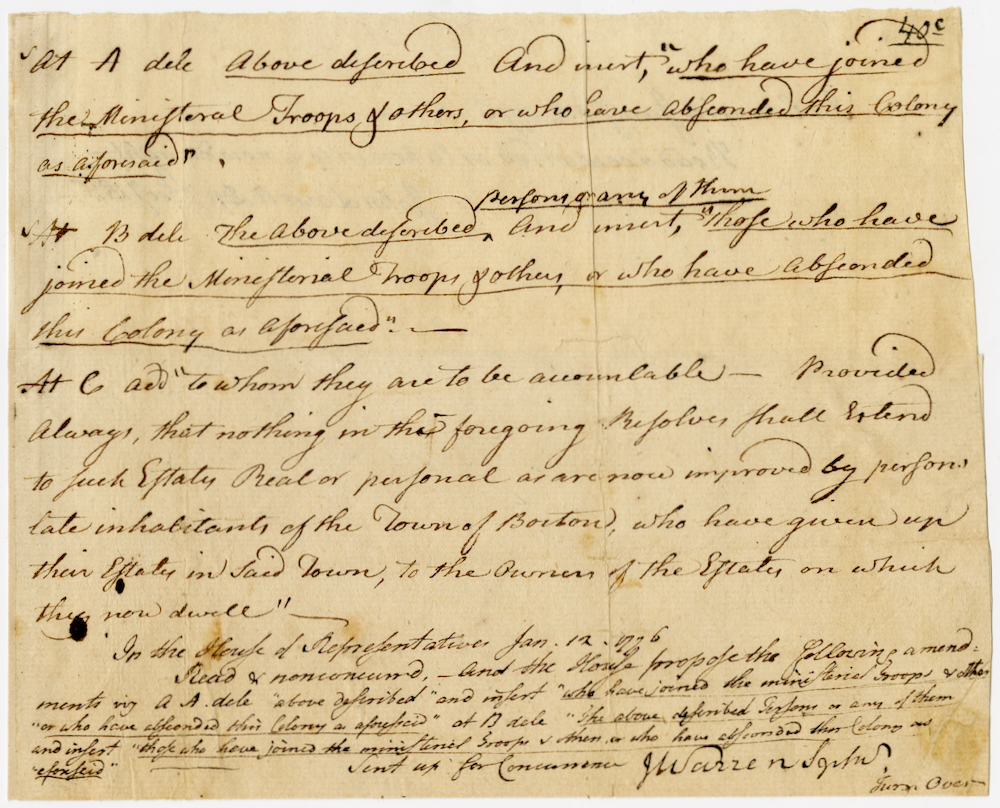 40c
At A dele Above described And insert, "who have joined
the Ministeral Troops & others, or who have absconded this Colony
as aforesaid",
persons or any of them
At B dele The above described And insert, "those who have
joined the Ministerial Troops & others, or who have absconded
this Colony as aforesaid". —
At C add "to whom they are to be accountable — Provided
Always, that nothing in the foregoing Resolves shall Extend
to such Estates Real or personal as are now improved by persons
late inhabitants of the Town of Boston, who have given up
their Estates in said Town, to the Owners of the Estates on which
they now dwell" —
In the House of Representatives Jan. 12. 1776
Read & nonconcurd, — And the House propose the following amend=
ments viz A A dele "above described" and insert "who have joined the ministerial Troops & others
"or who have absconded this Colony as aforesaid" at B dele "The above described Persons or any of them
and insert "those who have joined the ministerial Troops & others or who have absconded this Colony as
"aforesaid" Sent up for Concurrence J Warren Spkr.
Turn Over